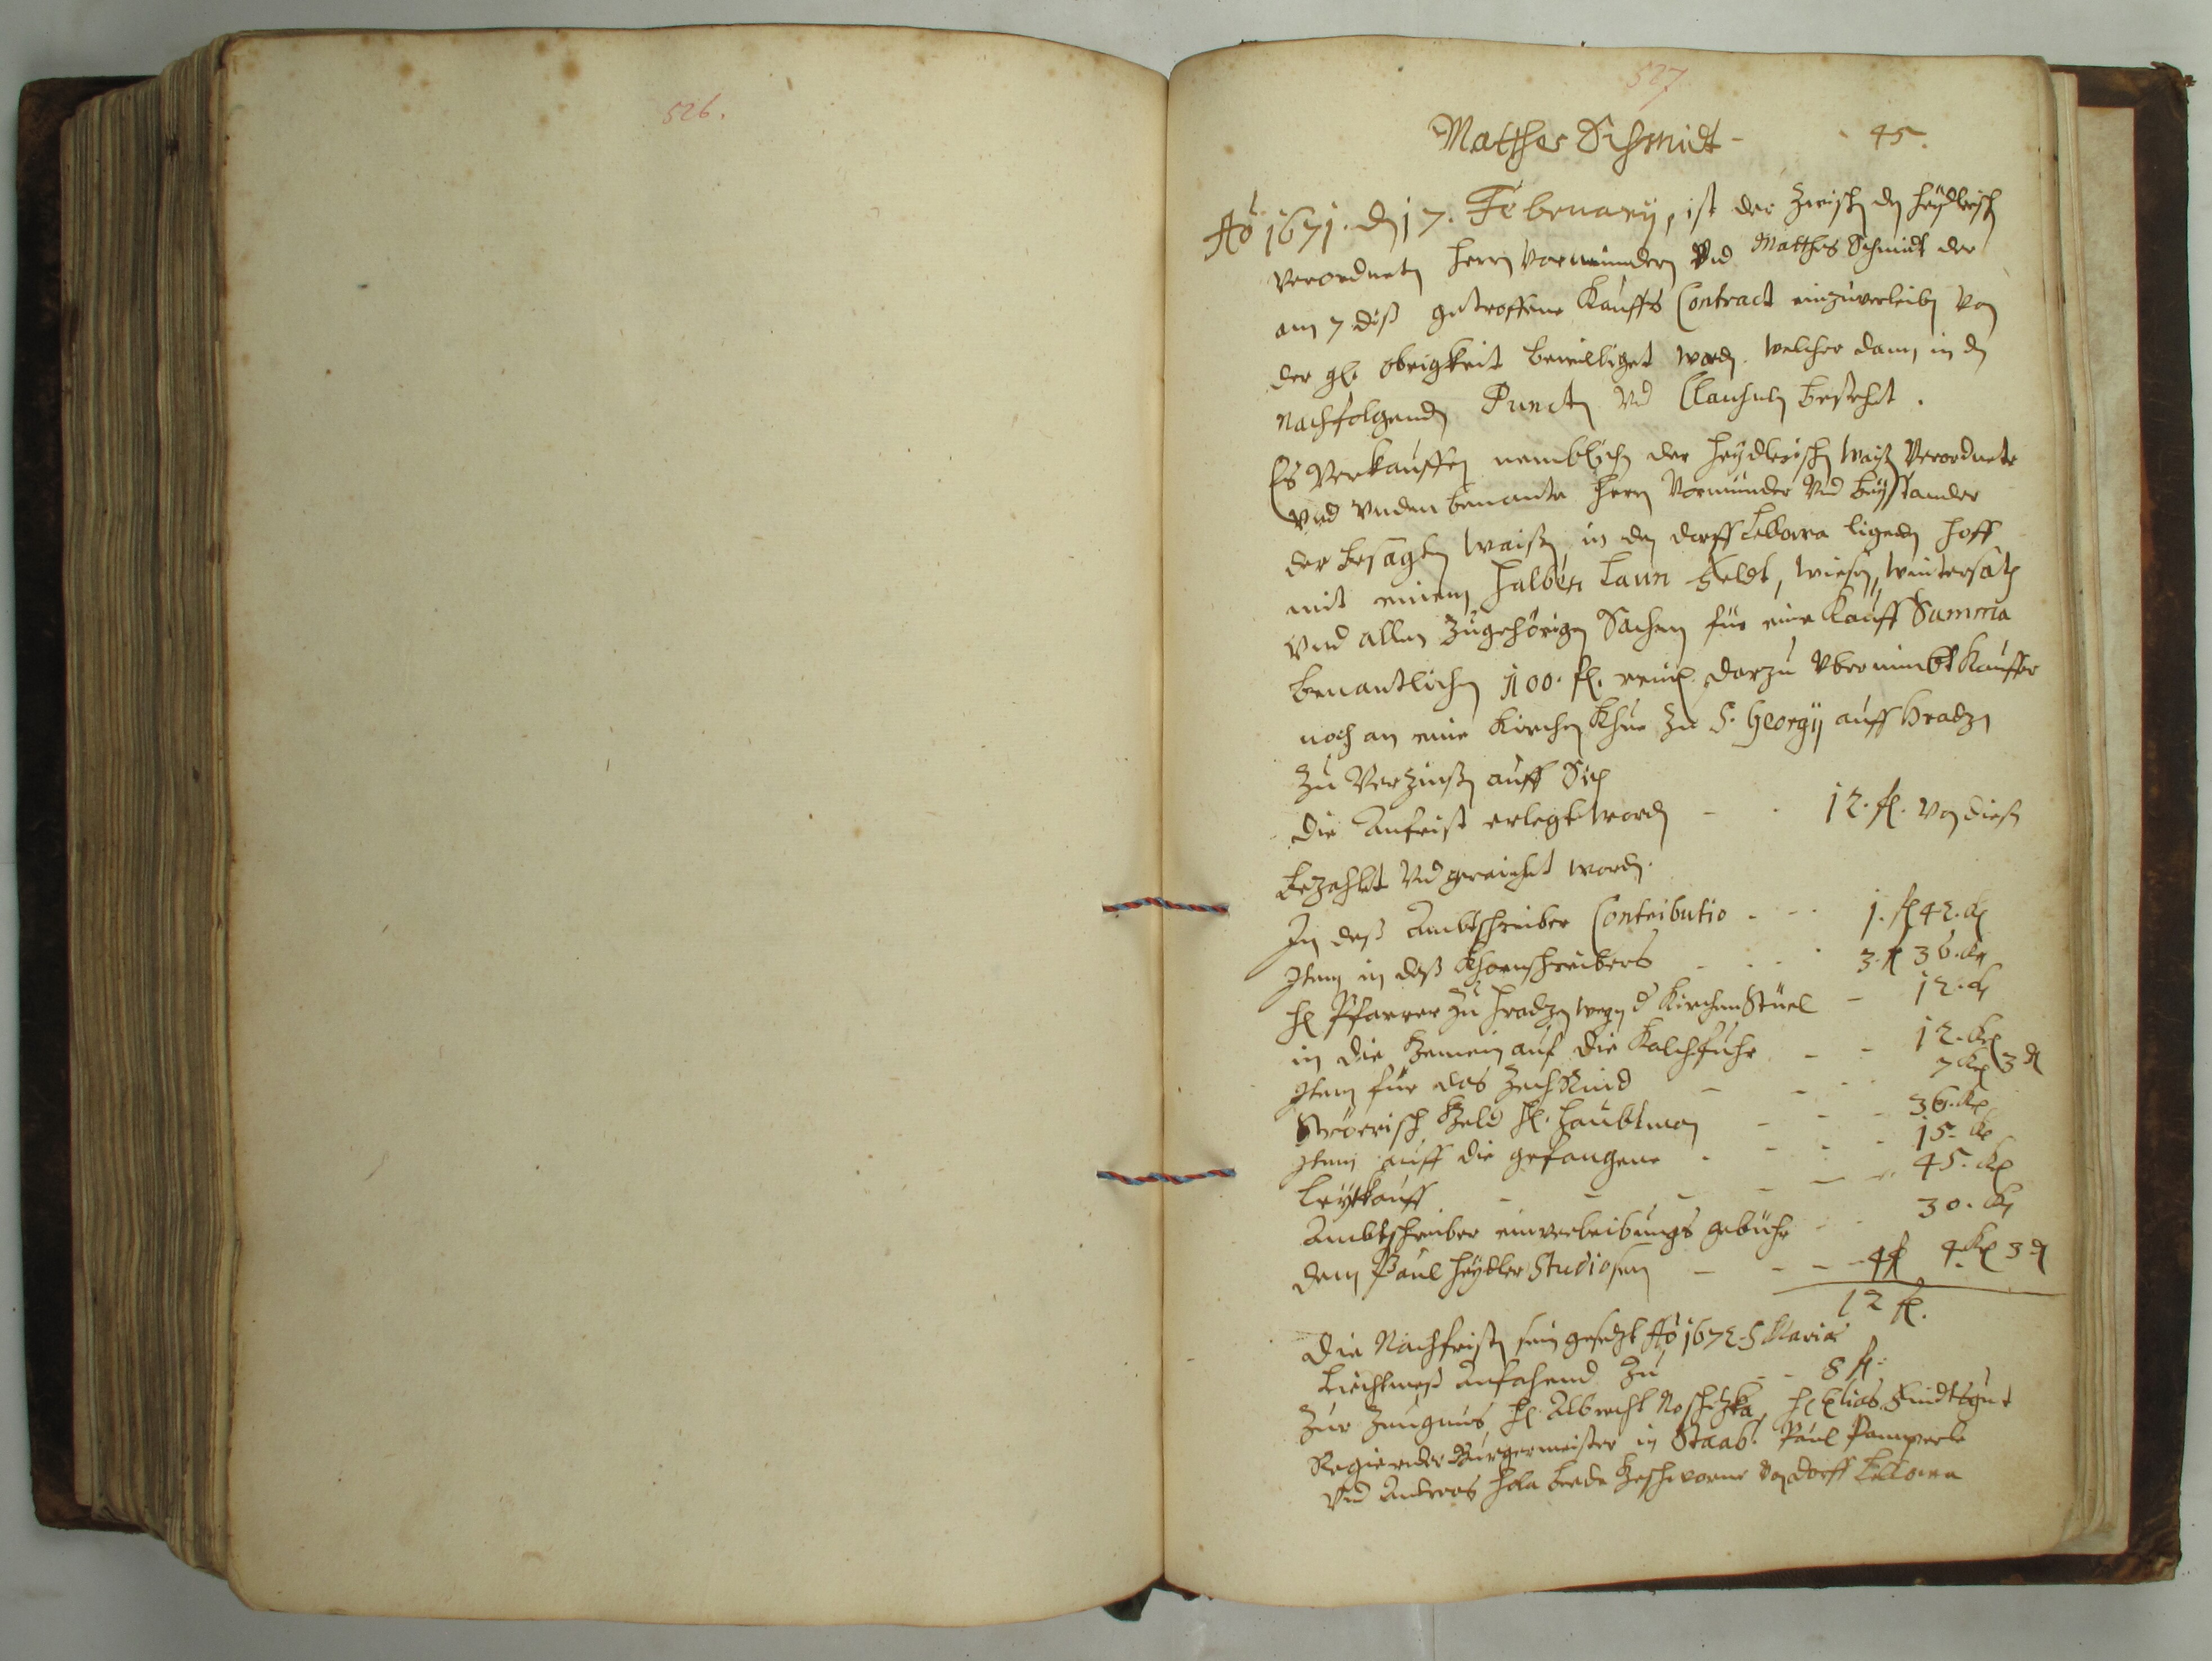 526.
527
Matthes Schmidt - - 45.
Aō 1671. dn 17. February, ist der Zwischn dn Heÿdlerisch
Verordnetn Herrn Vormündern Vnd Matthes Schmidt der
am 7 diß getroffene Kauffs Contract einzuverleibn Von
der gl. Obrigkeit bewilliget wordn. Welcher dann in dn
Nachfolgendn Punctn Vnd Clausuln bestehet.
Es Verkauffen nemblich der Heÿdlerischn Waißn Verordnete
Vnd Unden benante Herrn Vormünder Vnd Beÿstander
der besagtn Waißn, in dn dorff ligendn Hoff
mit einem Halben Laun Feldt, Wiesen, Wintersath
Vnd allen Zugehörigen Sachen für eine Kauff Summa
benantlichen 100. fl. rein. darzu Übernimbt Kauffer
noch an eine Kirchen Khue Zu S. Georgÿ auff Hradzn
Zu Verzinßn auff Sich
die Anfrist erlegt wordn - - 12. fl. Von diesn
bezahlt Vnd gereicht wordn.
In deß Ambtschreiber Contributio - - - 1. fl 42. kr
Item in deß Khornschreibers - - - 3. fl 36. kr
H. Pfarrer Zu Hradzen wegn d Kirchen Stuel - 12. kr
in die Gemein auf die Kalchfuhr - - 12. kr
Item für das Zech Kind - - - 7 kr 3 d
Geld H. Haubtman - - - 36. kr
Item auff die gefangene - - - - 15. kr
Leÿtkauff - - - - - - 45. kr
Ambtschreiber einverleibungs gebühr - - 30. kr
dem Paul Heÿdler Studiosen - - - 4 fl 4. kr 3 d
12 fl.
die Nachfristn sein gesetzt Aō 1672. S Maria
Liechtmeß Anfahend Zu - - 8 fl.
Zur Zeugnus, H. Albrecht H. Elias
Regierender Burgermeister in Staab. Paul
Vnd Andreas beede Geschworne Von dorff